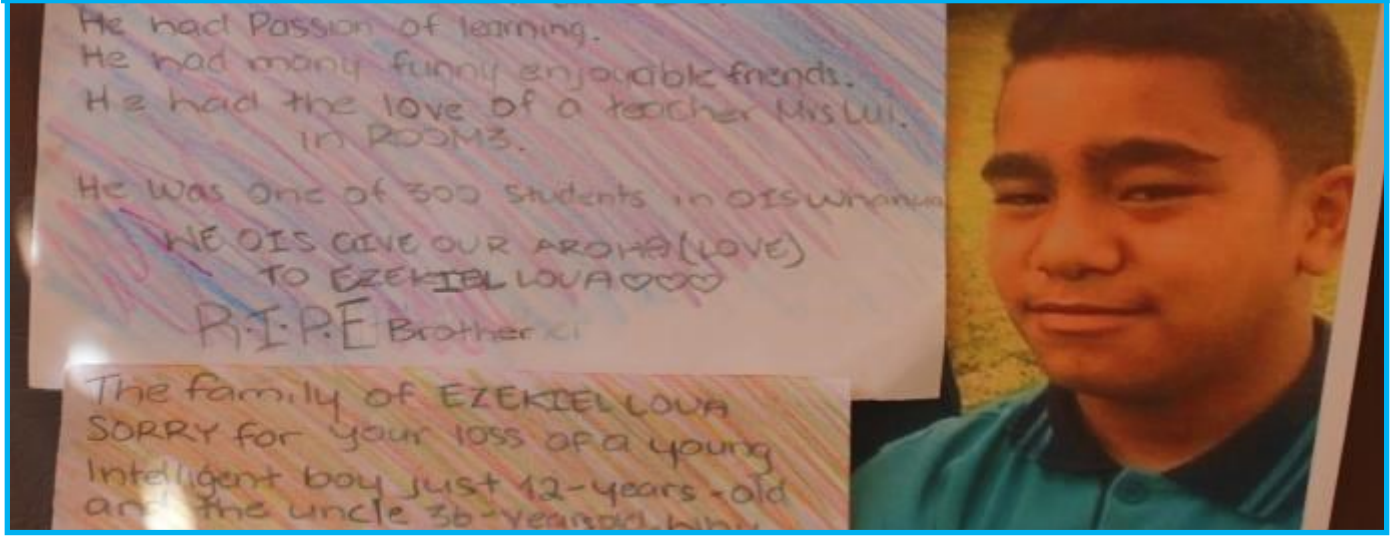 He had Passion of learning.
He had many funny enjoyable friends.
He had the love of a teacher Mrs Lui.
in ROOM3.
He Was One of 300 Students in OIS Whanua
WE OIS GIVE OUR AROHA (LOVE)
TO EZEKIEL LOUA ♡♡♡
R.I.P.E Brother
The family of EZEKIEL LOUA
SORRY for your loss of a young
Intelligent boy just 12-years-old
and the uncle 36-years-old